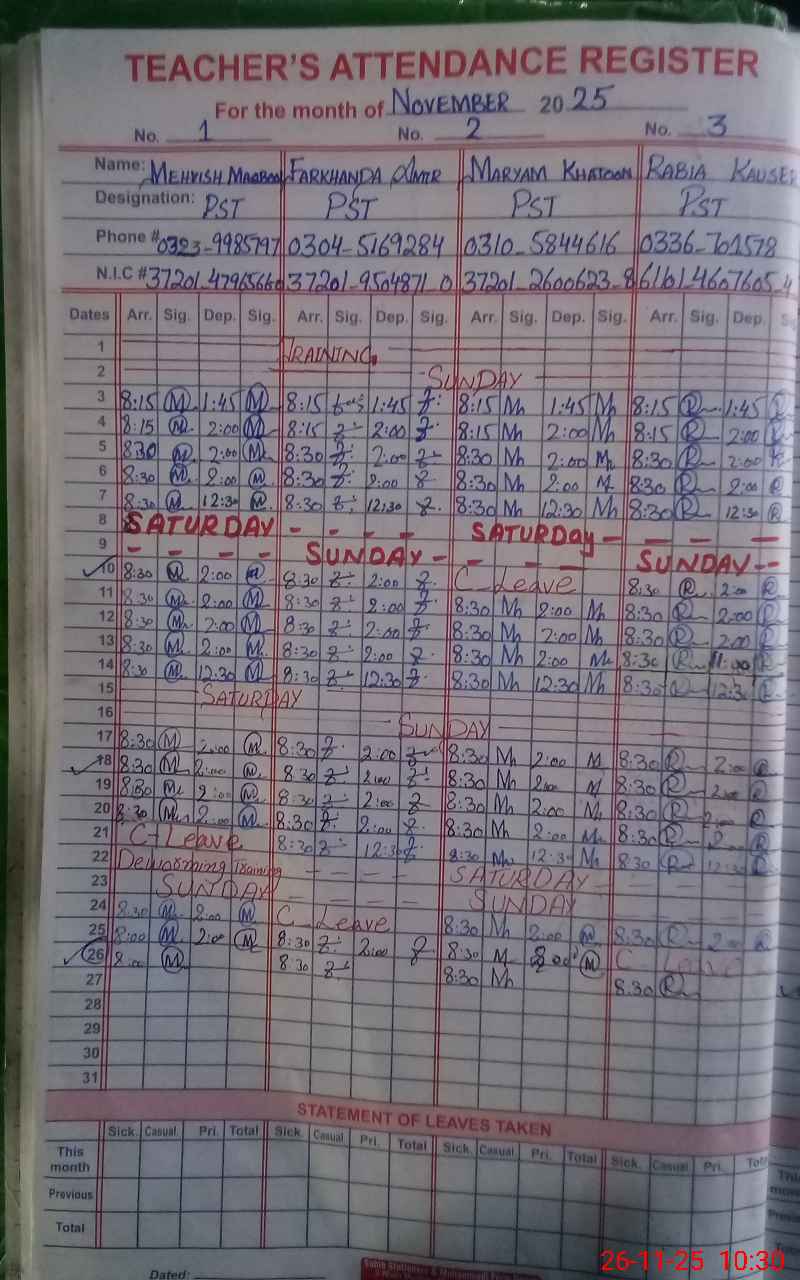 TEACHER'S ATTENDANCE REGISTER
For the month of NOVEMBER 2025
No. 1 No. 2 No. 3
Name: MEHVISH MAQBOOL FARKHANDA AMIR MARYAM KHATOON RABIA KAUSER
Designation: PST PST PST PST
Phone # 0323-9985797 0304-5169284 0310-5844616 0336-7601578
N.I.C # 37201-4796566 37201-9504871-0 37201-2600623-8 61101-4607605-4
Dates Arr. Sig. Dep. Sig. Arr. Sig. Dep. Sig. Arr. Sig. Dep. Sig. Arr. Sig. Dep.
1 TRAINING
2 SUNDAY
3 8:15 M 1:45 M 8:15 1:45 8:15 Mh 1:45 Mh 8:15 R 1:45 R
4 8:15 M 2:00 M 8:15 2:00 8:15 Mh 2:00 Mh 8:15 R 2:00 R
5 830 M 2:00 M 8:30 2:00 8:30 Mh 2:00 Mh 8:30 R 2:00 R
6 8:30 M 2:00 M 8:30 2:00 8:30 Mh 2:00 M 8:30 R 2:00 R
7 8:30 M 12:30 M 8:30 12:30 8:30 Mh 12:30 Mh 8:30 R 12:30 R
8 SATURDAY - - - - SATURDAY - - -
9 - - - - SUNDAY - - - - SUNDAY --
10 8:30 M 2:00 M 8:30 2:00 C-Leave 8:30 R 2:00 R
11 8:30 M 2:00 M 8:30 2:00 8:30 Mh 2:00 M 8:30 R 2:00 R
12 8:30 M 2:00 M 8:30 2:00 8:30 Mh 2:00 Mh 8:30 R 2:00 R
13 8:30 M 2:00 M 8:30 2:00 8:30 Mh 2:00 M 8:30 R R
14 8:30 M 12:30 M 8:30 12:30 8:30 Mh 12:30 Mh 8:30 R 12:30 R
15 SATURDAY
16 SUNDAY
17 8:30 M 2:00 M 8:30 2:00 8:30 Mh 2:00 M 8:30 R 2:00 R
18 8:30 M 2:00 M 8:30 2:00 8:30 Mh 2:00 M 8:30 R 2:00 R
19 8:30 M 2:00 M 8:30 2:00 8:30 Mh 2:00 Mh 8:30 R 2:00 R
20 8:30 M 2:00 M 8:30 2:00 8:30 Mh 2:00 Mh 8:30 R 2:00 R
21 C-Leave 8:30 12:30 8:30 Mh 12:30 Mh 8:30 R 12:30 R
22 Deworming Training - - - - SATURDAY - - -
23 SUNDAY - - - - SUNDAY - - -
24 8:30 M 2:00 M C-Leave 8:30 Mh 2:00 M 8:30 R 2:00 R
25 8:00 M 2:00 M 8:30 2:00 8:30 M 2:00 M C Leave
26 8:00 M 8:30 8:30 Mh 8:30 R
27
28
29
30
31
STATEMENT OF LEAVES TAKEN
Sick. Casual. Pri. Total Sick. Casual Pri. Total Sick. Casual. Pri. Total Sick. Casual Pri.
This month
Previous
Total
Dated:
26-11-25 10:30